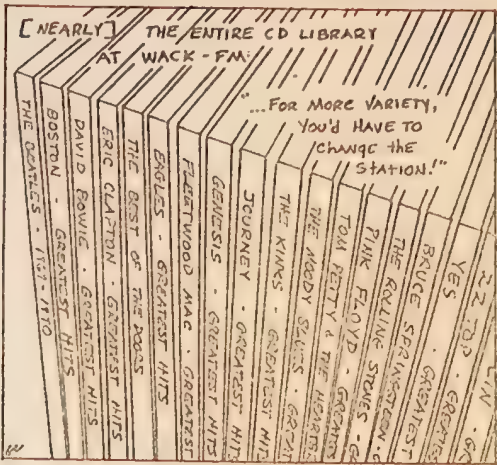 [NEARLY] THE ENTIRE CD LIBRARY
AT WACK-FM:
"...FOR MORE VARIETY,
YOU'D HAVE TO
CHANGE the
STATION!"
THE BEATLES - 1967-1970
BOSTON - GREATEST HITS
DAVID BOWIE - GREATEST HITS
ERIC CLAPTON - GREATEST HITS
THE BEST OF THE DOORS
EAGLES - GREATEST HITS
FLEETWOOD MAC - GREATEST
GENESIS - GREATEST HITS
JOURNEY - GREATEST HIT
THE KINKS - GREATEST HIT
THE MOODY BLUES - GREAT
TOM PETTY & THE HEARTB
PINK FLOYD - GREATES
THE ROLLING STONES - G
BRUCE SPRINGSTEEN G
YES - GREATEST
ZZ TOP - GREATES
LIN - G